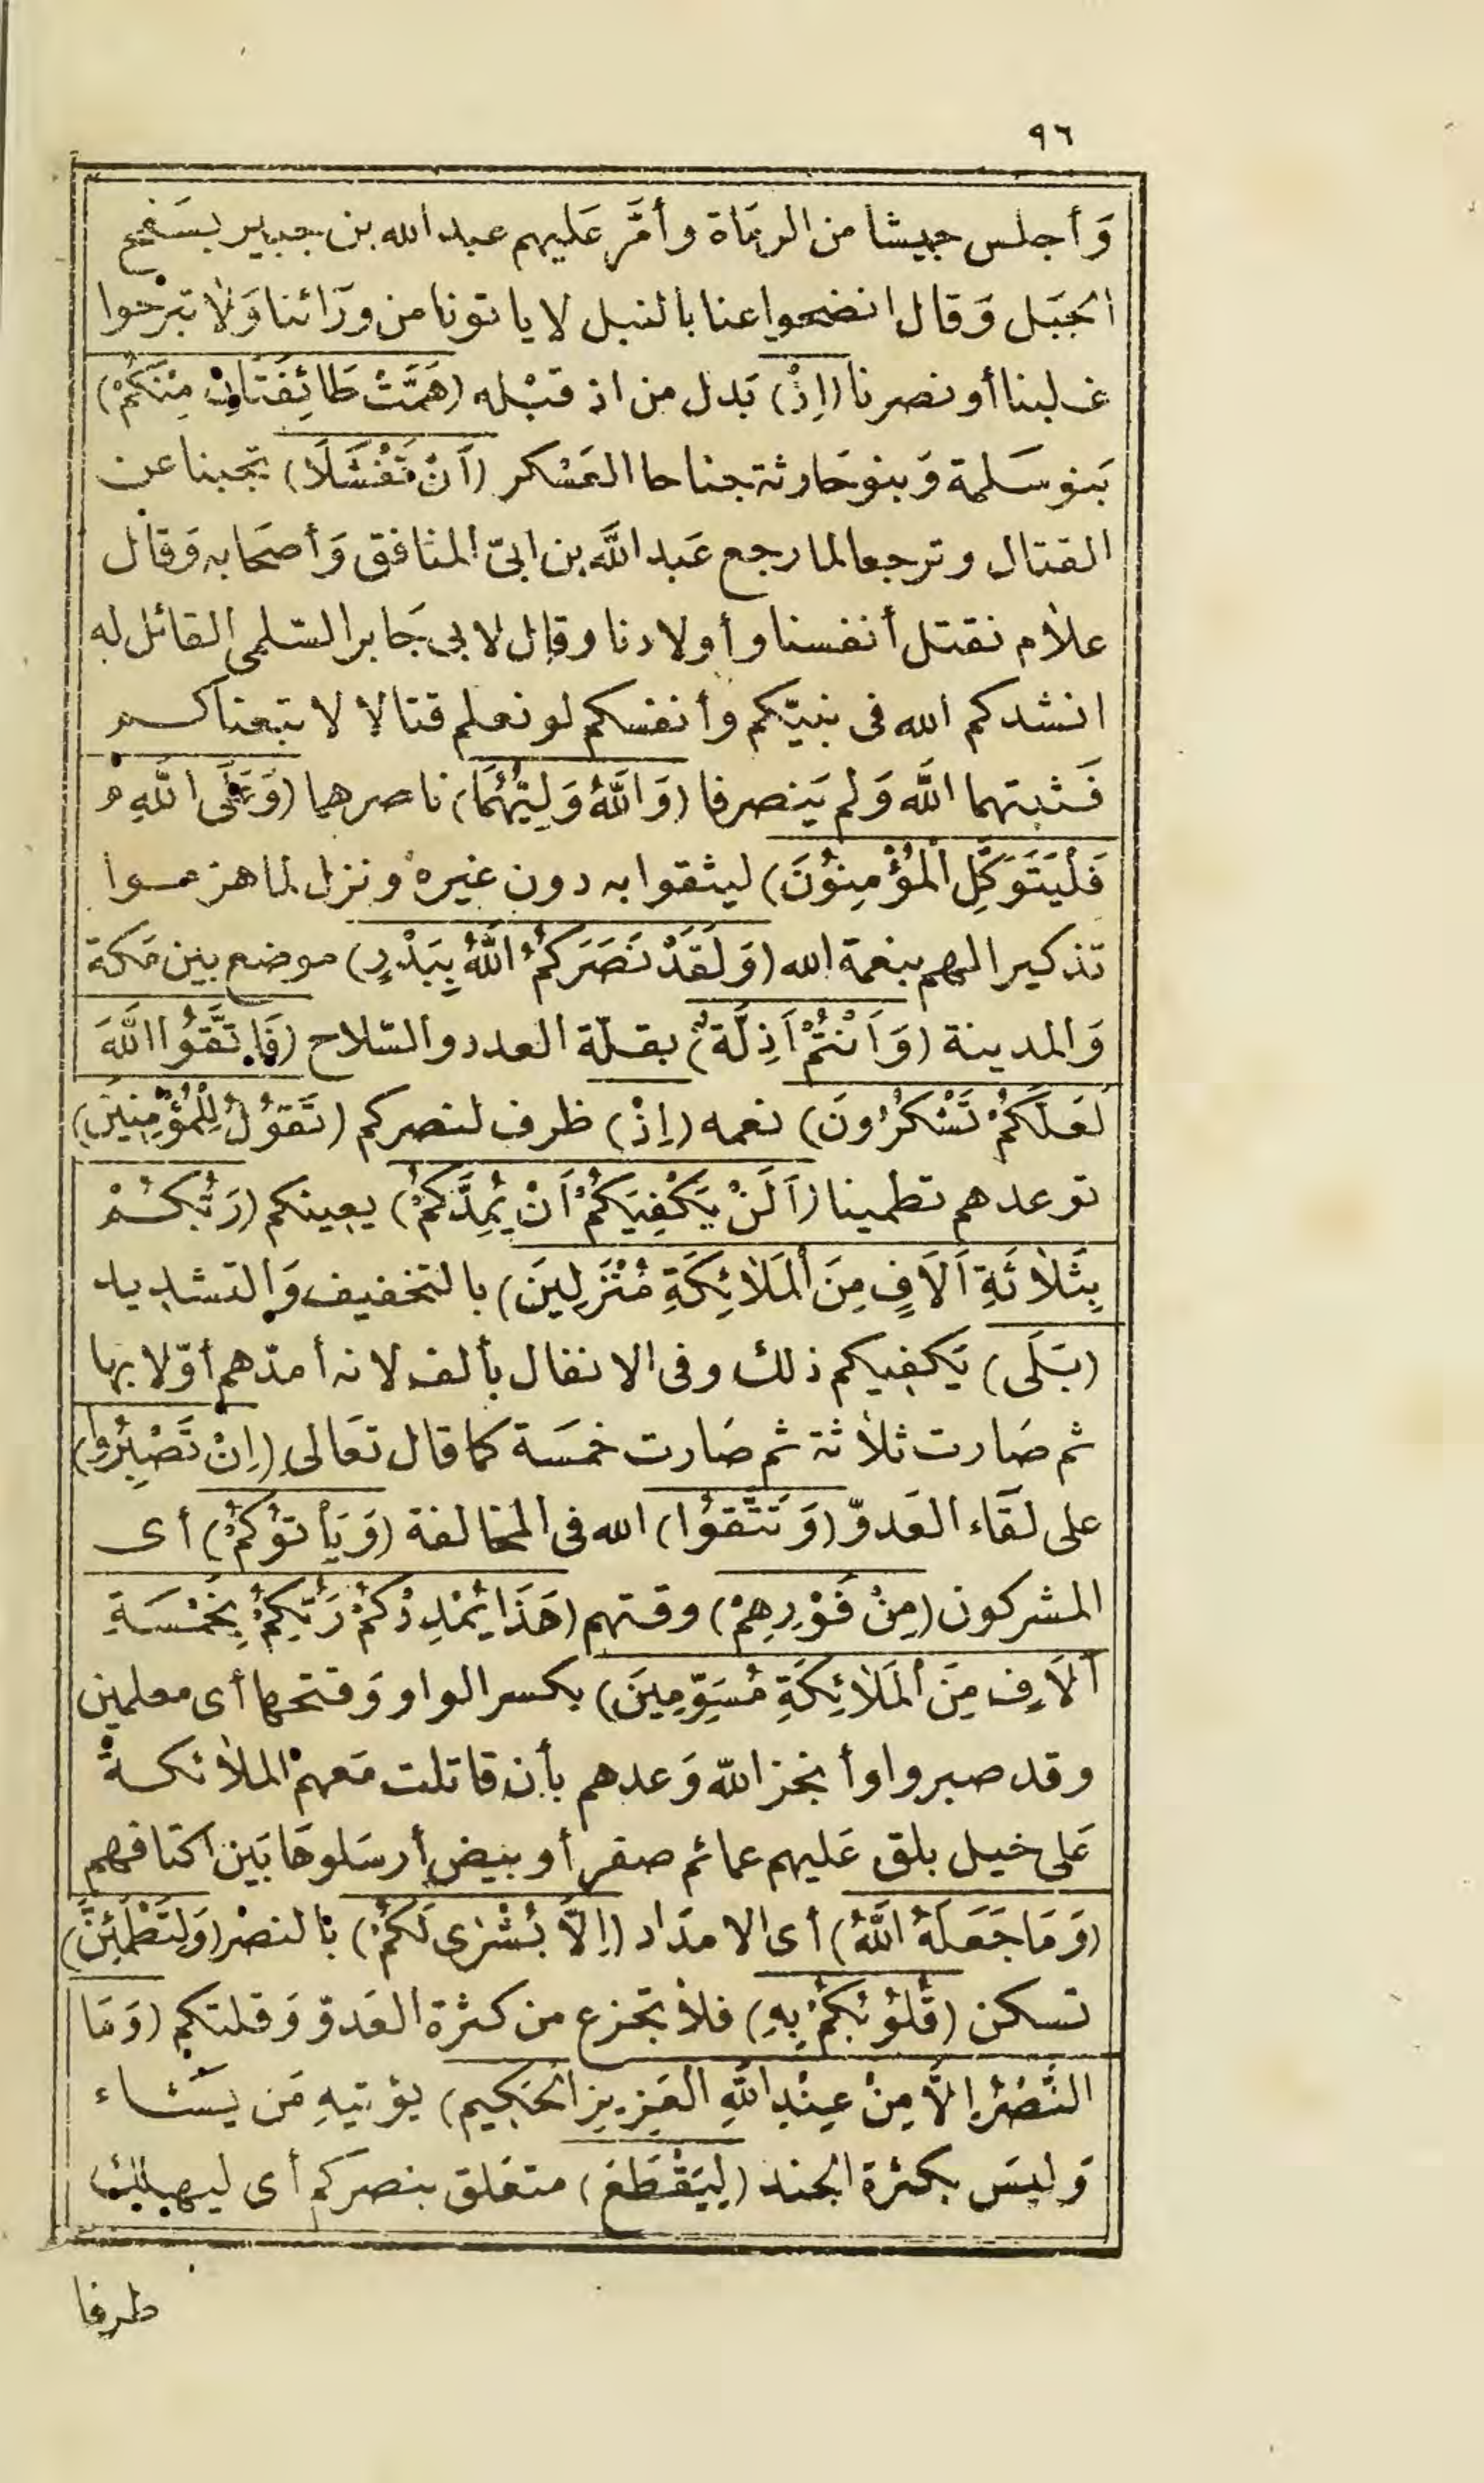 ٩٦
وَأجلس جيشا من الرمَاة وأمَّر عَليهم عبد الله بن جبير بسَفح
الجبَل وَقال انضحوا عنا بالنبل لا ياتونا من ورَائنا وَلا تبرحوا
غلبنا أو نصرنا (اِذْ) بَدل من اذ قبْله (هَمَّتْ طَائِفَتَانِ مِنْكُمْ)
بَنو سَلمة وَبنو حَارثة جناحا العَسْكر (اَنْ تَفْشَلَا) تجبنا عن
القتال وترجعا لما رجع عَبد اللَّه بن ابىّ المنافق وَأصحَابه وَقال
علام نقتل أنفسنا وأولادنا وقال لابى جَابر السّلمى القائل له
انشدكم الله فى نبيّكم وأنفسكم لو نعلم قتالا لا تبعناكم
فَثبتهما اللَّه وَلم يَنصرفا (وَاللَّهُ وَلِيُّهُمَا) ناصرهما (وَعَلَى اللَّهِ
فَلْيَتَوَكَّلِ الْمُؤْمِنُوْنَ) ليثقوا به دون غيره ونزل لما هزموا
تذكيرا لهم بنعمة الله (وَلَقَدْ نَصَرَكُمُ اللَّهُ بِبَدْرٍ) موضع بين مَكة
وَالمدينة (وَاَنْتُمْ اَذِلَّةٌ) بقلّة العدد والسّلاح (فَاتَّقُوا اللَّهَ
لَعَلَّكُمْ تَشْكُرُونَ) نعمه (اِذْ) ظرف لنصركم (تَقُوْلُ لِلْمُؤْمِنِينَ)
توعدهم تطمينا (اَلَنْ يَكْفِيَكُمْ اَنْ يُمِدَّكُمْ) يعينكم (رَبُّكُمْ
بِثَلاثَةِ اَلَافٍ مِنَ الْمَلَائِكَةِ مُنْزَلِينَ) بالتخفيف وَالتشديد
(بَلَى) يَكفيكم ذلك وفى الانفال بألف لانه أمدّهم أوّلا بها
ثم صَارت ثلاثة ثم صَارت خمسَة كما قال تعَالى (اِنْ تَصْبِرُوا)
على لقَاء العَدوّ (وَتَتَّقُوْا) الله فى المخالفة (وَيَأتوُكُمْ) أى
المشركون (مِنْ فَوْرِهِمْ) وقتهم (هَذَا يُمْدِدْكُمْ رَبُّكُمْ بِخَمْسَةِ
اٰلَافٍ مِنَ الْمَلَائِكَةِ مُسَوِّمِينَ) بكسر الواو وَفتحها أى معلمين
وقد صبروا وأنجز اللّه وَعدهم بأن قاتلت مَعهمْ الملائكة
عَلى خيل بلق عَليهم عمائم صفر أو بيض أرسَلوهَا بَين اكتافهم
(وَمَا جَعَلَهُ اللَّهُ) أى الامدَاد (اِلَّا بُشْرٰى لَكُمْ) بالنصْر (وَلِتَطْمَئِنَّ)
تسكن (قُلُوْبُكُمْ بِهِ) فلا تجزع من كثرة العَدوّ وَقلتكم (وَمَا
النَّصْرُ اِلَّا مِنْ عِنْدِ اللَّهِ العَزِيزِ الْحَكِيم) يؤتيهِ مَن يَشاء
وَليسَ بكثرة الجند (لِيَقْطَعَ) متعَلق بنصركم أى ليهلك
طرفا